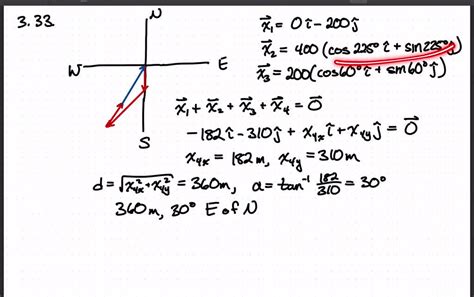 3.33.
N
W E
S
x⃗₁ = 0î - 200ĵ
x⃗₂ = 400 (cos 225° î + sin 225° ĵ)
x⃗₃ = 200 (cos 60° î + sin 60° ĵ)
x⃗₁ + x⃗₂ + x⃗₃ + x⃗₄ = 0⃗
-182î - 310ĵ + x₄ₓî + x₄yĵ = 0⃗
x₄ₓ = 182m, x₄y = 310m
d = √(x₄ₓ² + x₄y²) = 360m, α = tan⁻¹ 182/310 = 30°
360m, 30° E of N